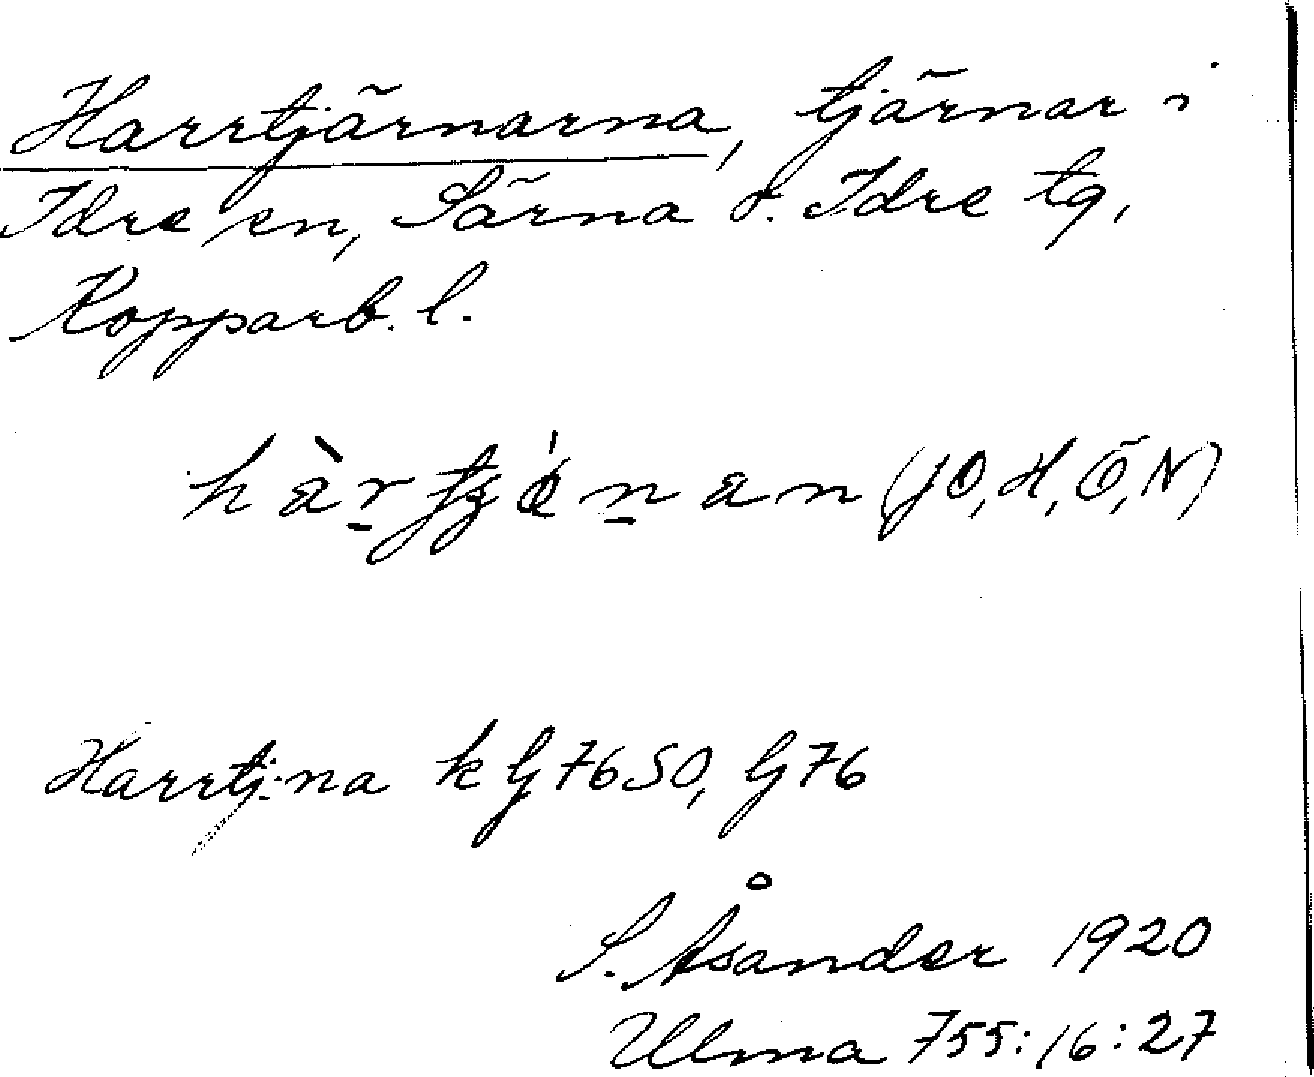 Harrtjärnarna, tjärnar i
Idre sn, Särna o. Idre tg,
Kopparb. l.
(JO, H, Ö, N)
Harrtj:na k G 76 SO, G 76
S. Åsander 1920
Ulma 755:16:27